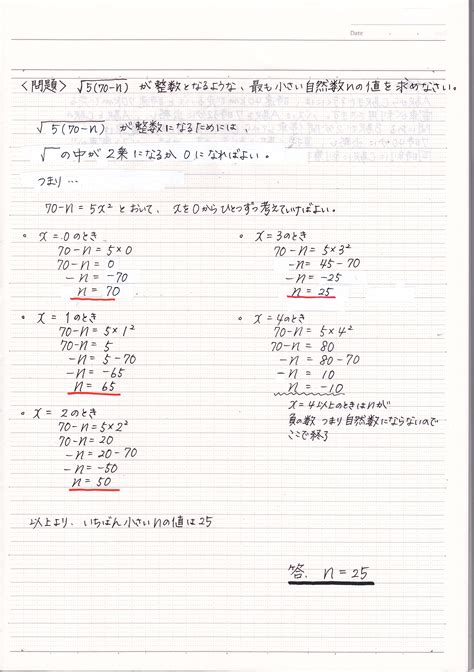 Date
〈問題〉 √5(70-n) が整数となるような、最も小さい自然数nの値を求めなさい。
√5(70-n) が整数になるためには、
√ の中が2乗になるか0になればよい。
つまり…
70-n=5x² とおいて、xを0からひとつずつ考えていけばよい。
• x=0のとき
70-n=5×0
70-n=0
-n=-70
n=70
• x=1のとき
70-n=5×1²
70-n=5
-n=5-70
-n=-65
n=65
• x=2のとき
70-n=5×2²
70-n=20
-n=20-70
-n=-50
n=50
• x=3のとき
70-n=5×3²
-n=45-70
-n=-25
n=25
• x=4のとき
70-n=5×4²
70-n=80
-n=80-70
-n=10
n=-10
x=4以上のときはnが
負の数 つまり自然数にならないので
ここで終了
以上より、いちばん小さいnの値は25
答、n=25